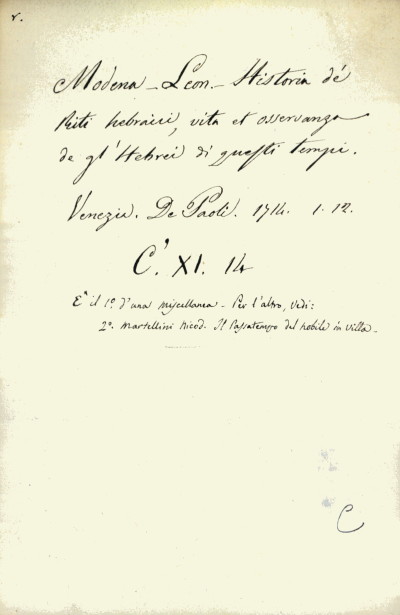 r.
Modena - Leon. - Historia dé
Riti hebraici, vita et osservanza
de gl'Hebrei di questi tempi.
Venezia. De Paoli. 1714. 1. 12.
C'. XI. 14
E' il 1º d'una miscellanea - Per l'altro, vedi:
2º. Martellini Nicod. Il Passatempo del Nobile in Villa -
C